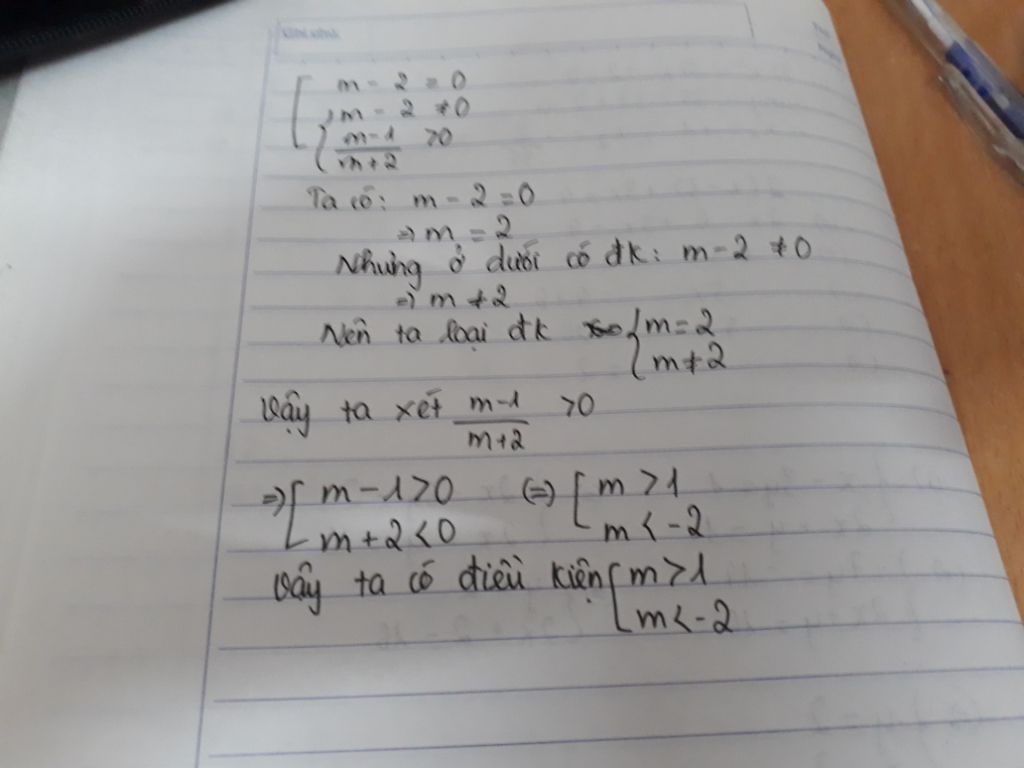 [ m - 2 = 0
{ m - 2 ≠ 0
m-1/m+2 > 0
Ta có: m - 2 = 0
⇒ m = 2
Nhưng ở dưới có đk: m - 2 ≠ 0
⇒ m ≠ 2
Nên ta loại đk { m = 2
m ≠ 2
Vậy ta xét m-1/m+2 > 0
⇒ [ m - 1 > 0 (=) [ m > 1
m + 2 < 0 m < -2
Vậy ta có điều kiện [ m > 1
m < -2